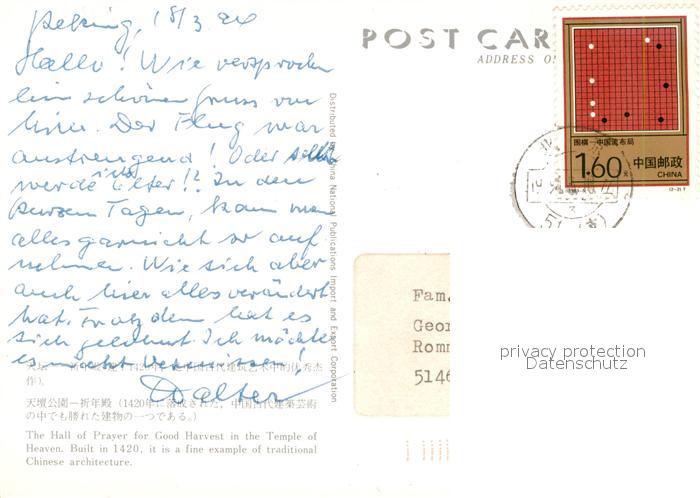 Peking, 18/3 94
Hallo! Wie versprochen
ein schöner Gruss von
hier. Der Flug war
anstrengend! Oder
werde ich älter!? In den
kurzen Tagen, kann man
alles garnicht so auf
nehmen. Wie sich aber
auch hier alles verändert
hat. Trotzdem hat es
sich gelohnt. Ich möchte
es nicht vermissen!
Walter
作）。
天壇公園－祈年殿（1420年に落成された，中国古代建築芸術
の中でも勝れた建物の一つである。）
The Hall of Prayer for Good Harvest in the Temple of
Heaven. Built in 1420, it is a fine example of traditional
Chinese architecture.
Distributed by China National Publications Import and Export Corporation
POST CAR
ADDRESS O
围棋—中国流布局
1.60元 中国邮政
CHINA
Fam.
Geor
Romm
5146
privacy protection
Datenschutz